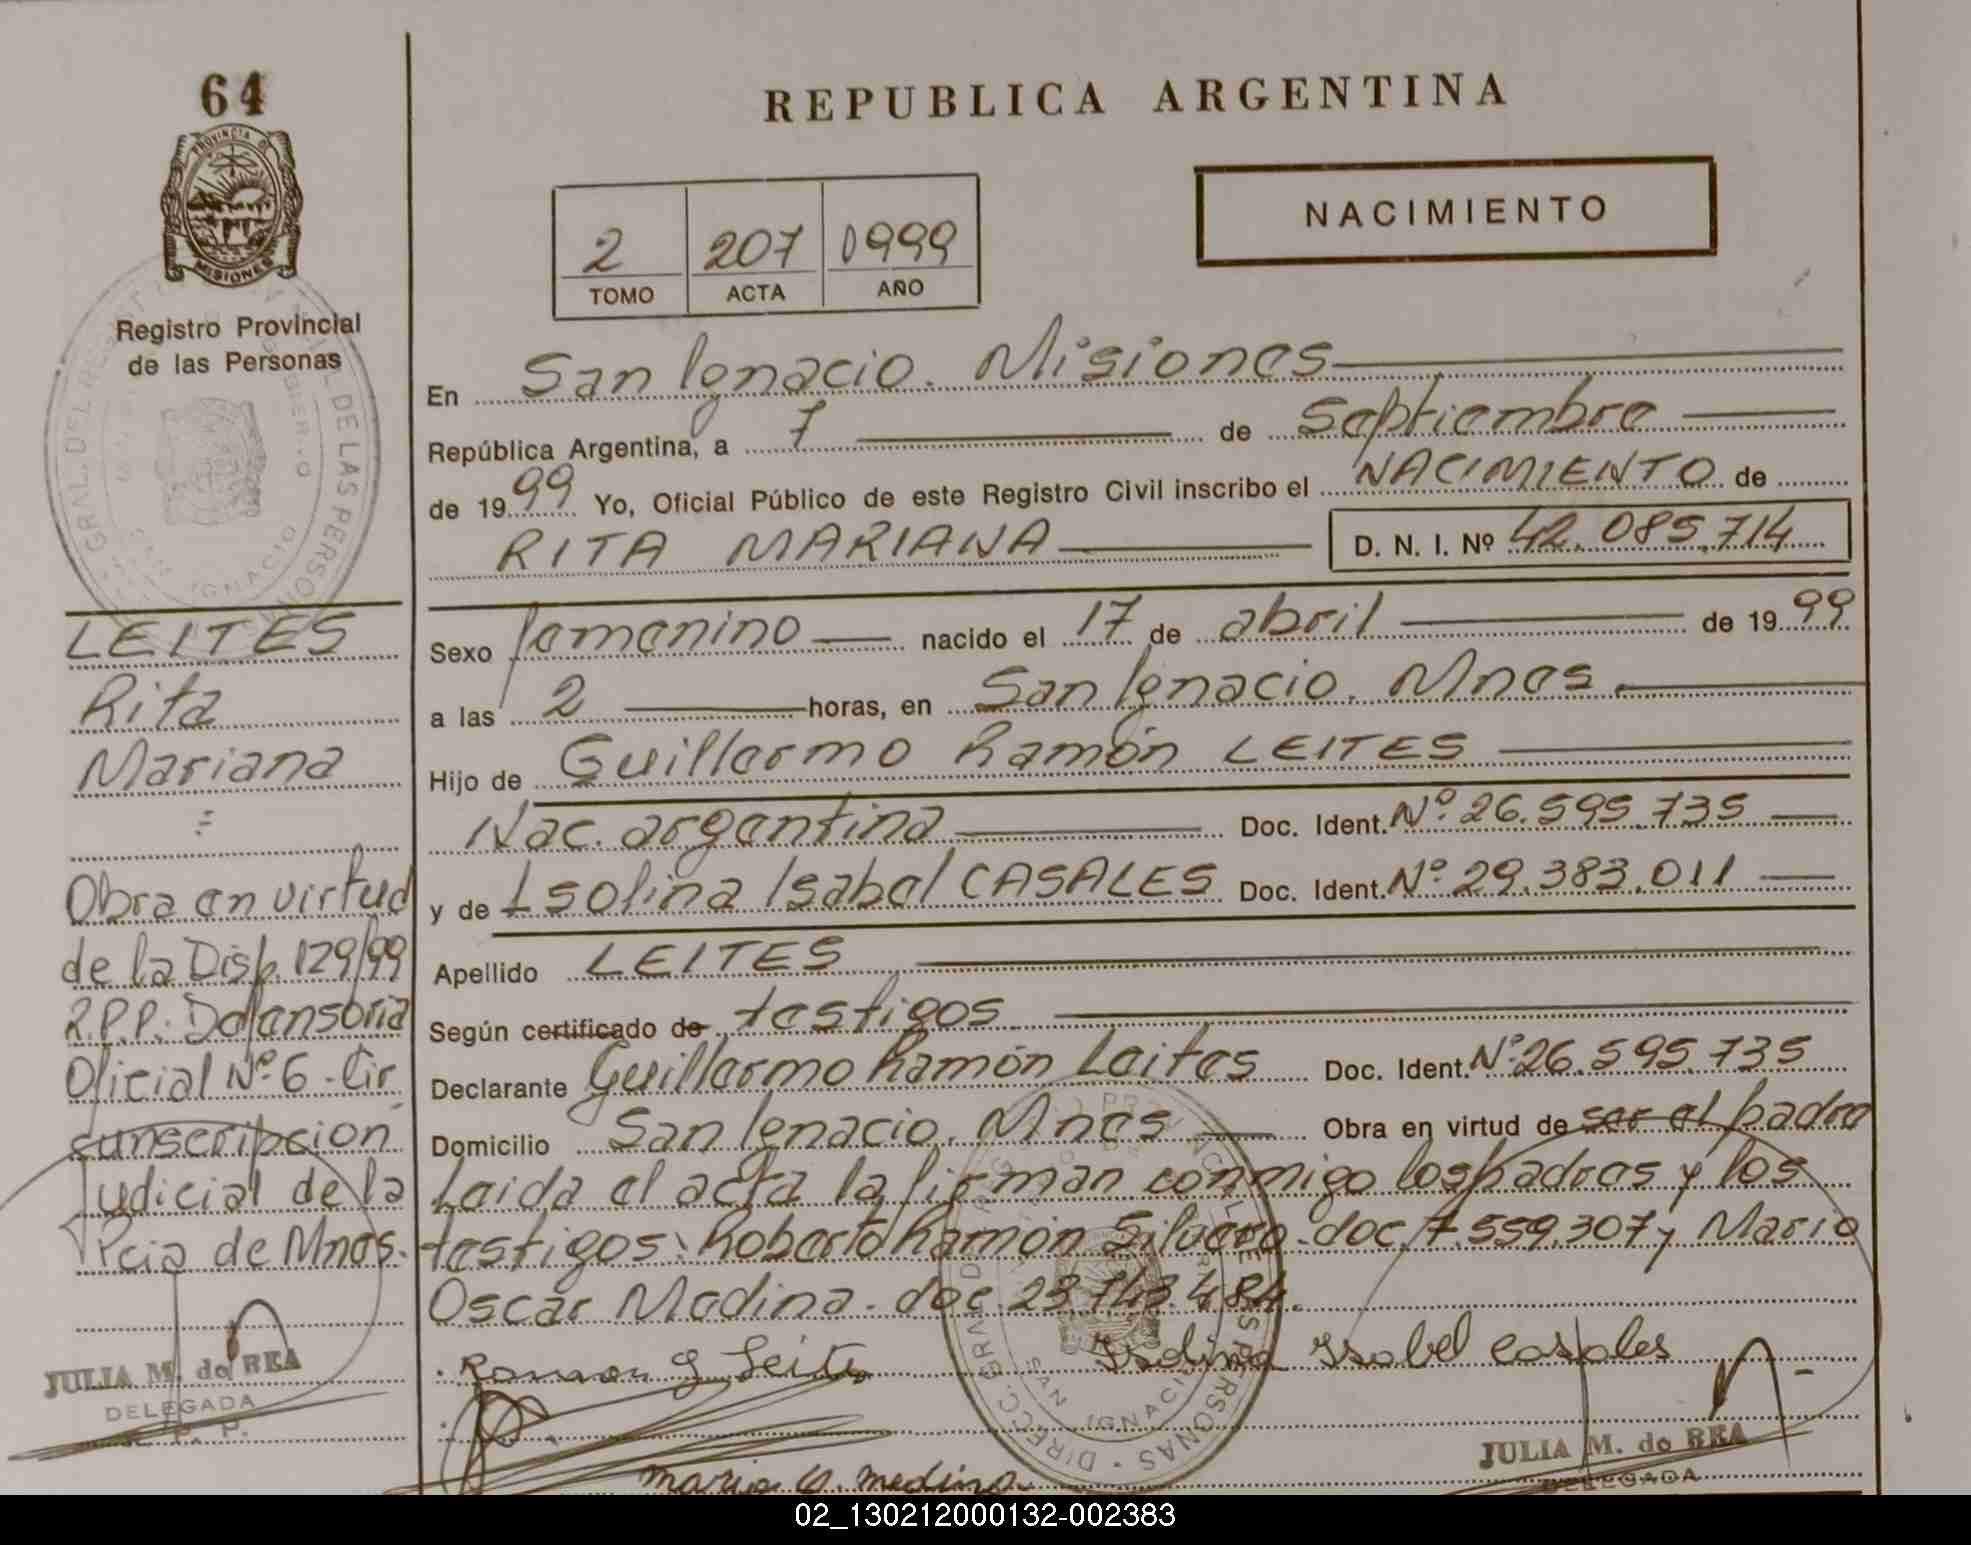 64
REPUBLICA ARGENTINA
PROVINCIA D
MISIONES
NACIMIENTO
2 207 1999
TOMO ACTA AÑO
Registro Provincial
de las Personas
En San Ignacio. Misiones
República Argentina, a 7 de Septiembre
de 1999 Yo, Oficial Público de este Registro Civil inscribo el NACIMIENTO de
RITA MARIANA D. N. I. Nº 42.085.714
LEITES
Rita
Mariana
Obra en virtud
de la Disp. 129/99
R.P.P. Defensoria
Oficial Nº 6 - Cir
cunscripcion
Judicial de la
Pcia de Mnes.
JULIA M. de REA
DELEGADA
R. P. P.
Sexo femenino nacido el 17 de abril de 1999
a las 2 horas, en San Ignacio. Mnes.
Hijo de Guillermo Ramón LEITES
Nac. argentina Doc. Ident. Nº 26.595.735
y de Isolina Isabel CASALES Doc. Ident. Nº 29.383.011
Apellido LEITES
Según certificado de testigos
Declarante Guillermo Ramón Leites Doc. Ident. Nº 26.595.735
Domicilio San Ignacio. Mnes Obra en virtud de ser el padre
Leida el acta la firman conmigo los padres y los
testigos: Roberto Ramón Silvero - doc. 7.559.307 y Mario
Oscar Medina - doc. 23.743.484.
Ramon G Leites Isolina Isabel Casales
Mario O. Medina
JULIA M. de REA
DELEGADA
02_130212000132-002383